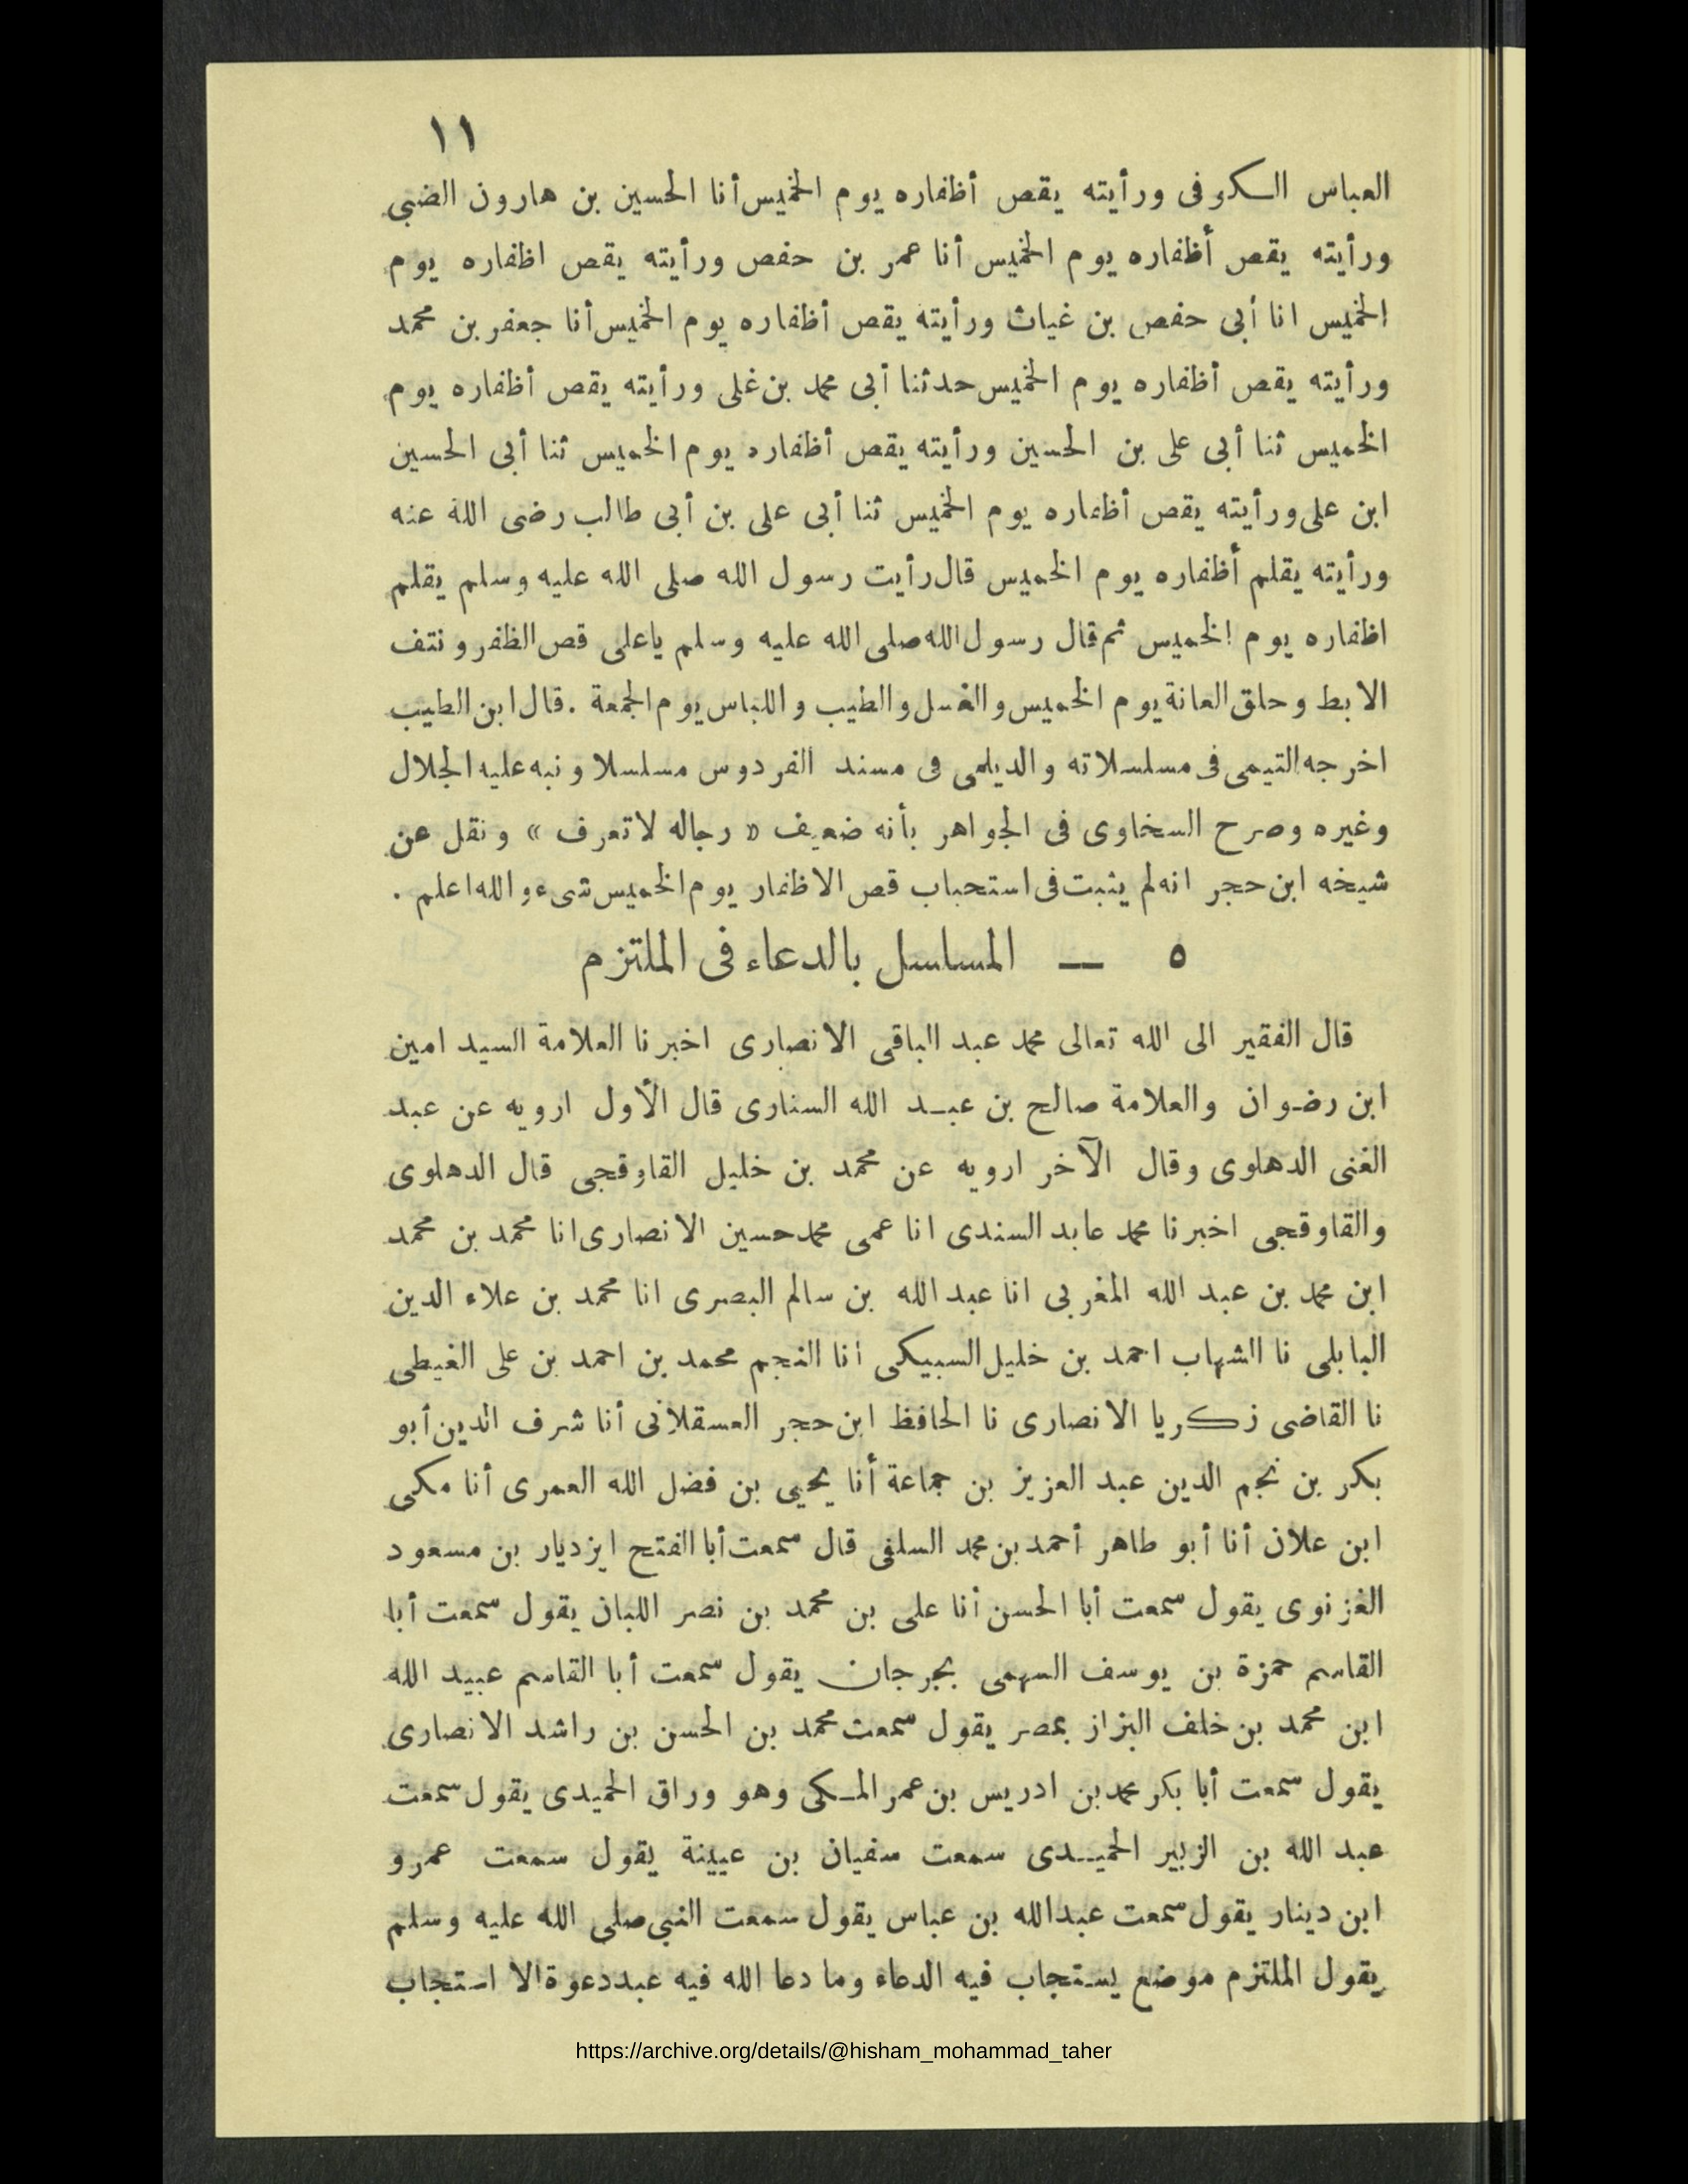 ١١
العباس الكوفى ورأيته يقص أظفاره يوم الخميس أنا الحسين بن هارون الضبى
ورأيته يقص أظفاره يوم الخميس أنا عمر بن حفص ورأيته يقص اظفاره يوم
الخميس انا أبى حفص بن غياث ورأيته يقص أظفاره يوم الخميس أنا جعفر بن محمد
ورأيته يقص أظفاره يوم الخميس حدثنا أبى محمد بن غلى ورأيته يقص أظفاره يوم
الخميس ثنا أبى على بن الحسين ورأيته يقص أظفاره يوم الخميس ثنا أبى الحسين
ابن على ورأيته يقص أظفاره يوم الخميس ثنا أبى على بن أبى طالب رضى الله عنه
ورأيته يقلم أظفاره يوم الخميس قال رأيت رسول الله صلى الله عليه وسلم يقلم
اظفاره يوم الخميس ثم قال رسول الله صلى الله عليه وسلم ياعلى قص الظفر ونتف
الابط وحلق العانة يوم الخميس والغسل والطيب واللباس يوم الجمعة . قال ابن الطيب
اخرجه التيمى فى مسلسلاته والديلمى فى مسند الفردوس مسلسلا ونبه عليه الجلال
وغيره وصرح السخاوى فى الجواهر بأنه ضعيف « رجاله لا تعرف » ونقل عن
شيخه ابن حجر انه لم يثبت فى استحباب قص الاظفار يوم الخميس شىء والله اعلم .
٥ — المسلسل بالدعاء فى الملتزم
قال الفقير الى الله تعالى محمد عبد الباقى الانصارى اخبرنا العلامة السيد امين
ابن رضوان والعلامة صالح بن عبد الله السنارى قال الأول ارويه عن عبد
الغنى الدهلوى وقال الآخر ارويه عن محمد بن خليل القاوقجى قال الدهلوى
والقاوقجى اخبرنا محمد عابد السندى انا عمى محمد حسين الانصارى انا محمد بن محمد
ابن محمد بن عبد الله المغربى انا عبد الله بن سالم البصرى انا محمد بن علاء الدين
البابلى نا الشهاب احمد بن خليل السبيكى انا النجم محمد بن احمد بن على الغيطى
نا القاضى زكريا الانصارى نا الحافظ ابن حجر العسقلانى أنا شرف الدين أبو
بكر بن نجم الدين عبد العزيز بن جماعة أنا يحيى بن فضل الله العمرى أنا مكى
ابن علان أنا أبو طاهر أحمد بن محمد السلفى قال سمعت أبا الفتح ايزديار بن مسعود
الغزنوى يقول سمعت أبا الحسن أنا على بن محمد بن نصر اللبان يقول سمعت أبا
القاسم حمزة بن يوسف السهمى بجرجان يقول سمعت أبا القاسم عبيد الله
ابن محمد بن خلف البزاز بمصر يقول سمعت محمد بن الحسن بن راشد الانصارى
يقول سمعت أبا بكر محمد بن ادريس بن عمر المكى وهو وراق الحميدى يقول سمعت
عبد الله بن الزبير الحميدى سمعت سفيان بن عيينة يقول سمعت عمرو
ابن دينار يقول سمعت عبدالله بن عباس يقول سمعت النبى صلى الله عليه وسلم
يقول الملتزم موضع يستجاب فيه الدعاء وما دعا الله فيه عبد دعوة الا استجاب
https://archive.org/details/@hisham_mohammad_taher